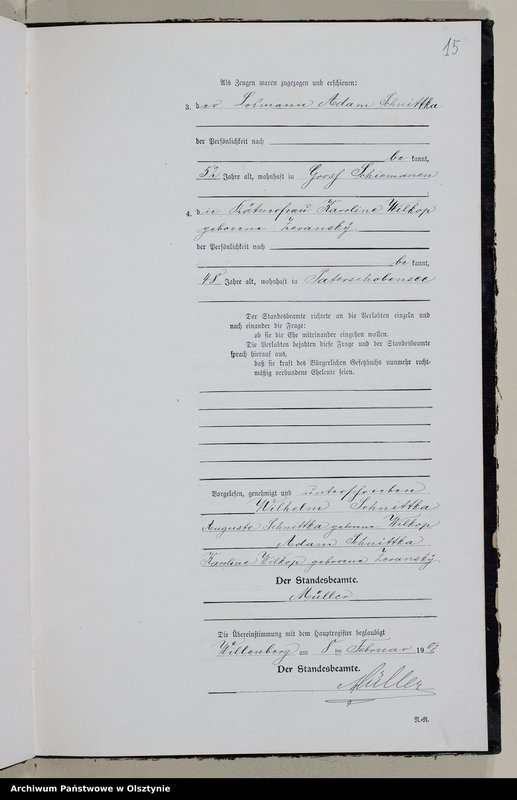 15
Als Zeugen waren zugezogen und erschienen:
3. der Losmann Adam Schnittka
der Persönlichkeit nach
be kannt,
52 Jahre alt, wohnhaft in Gross Schiemanen
4. die Kätnerfrau Karoline Wilkop
geborene Zeransky
der Persönlichkeit nach
be kannt,
48 Jahre alt, wohnhaft in Paterschobensee
Der Standesbeamte richtete an die Verlobten einzeln und
nach einander die Frage:
ob sie die Ehe miteinander eingehen wollen.
Die Verlobten bejahten diese Frage und der Standesbeamte
sprach hierauf aus,
daß sie kraft des Bürgerlichen Gesetzbuchs nunmehr recht-
mäßig verbundene Eheleute seien.
Vorgelesen, genehmigt und unterschrieben
Wilhelm Schnittka
Auguste Schnittka geborene Wilkop
Adam Schnittka
Karoline Wilkop geborene Zeransky
Der Standesbeamte.
Müller
Die Übereinstimmung mit dem Hauptregister beglaubigt
Willenberg am 8 ten Februar 19
Der Standesbeamte.
Müller
Archiwum Państwowe w Olsztynie